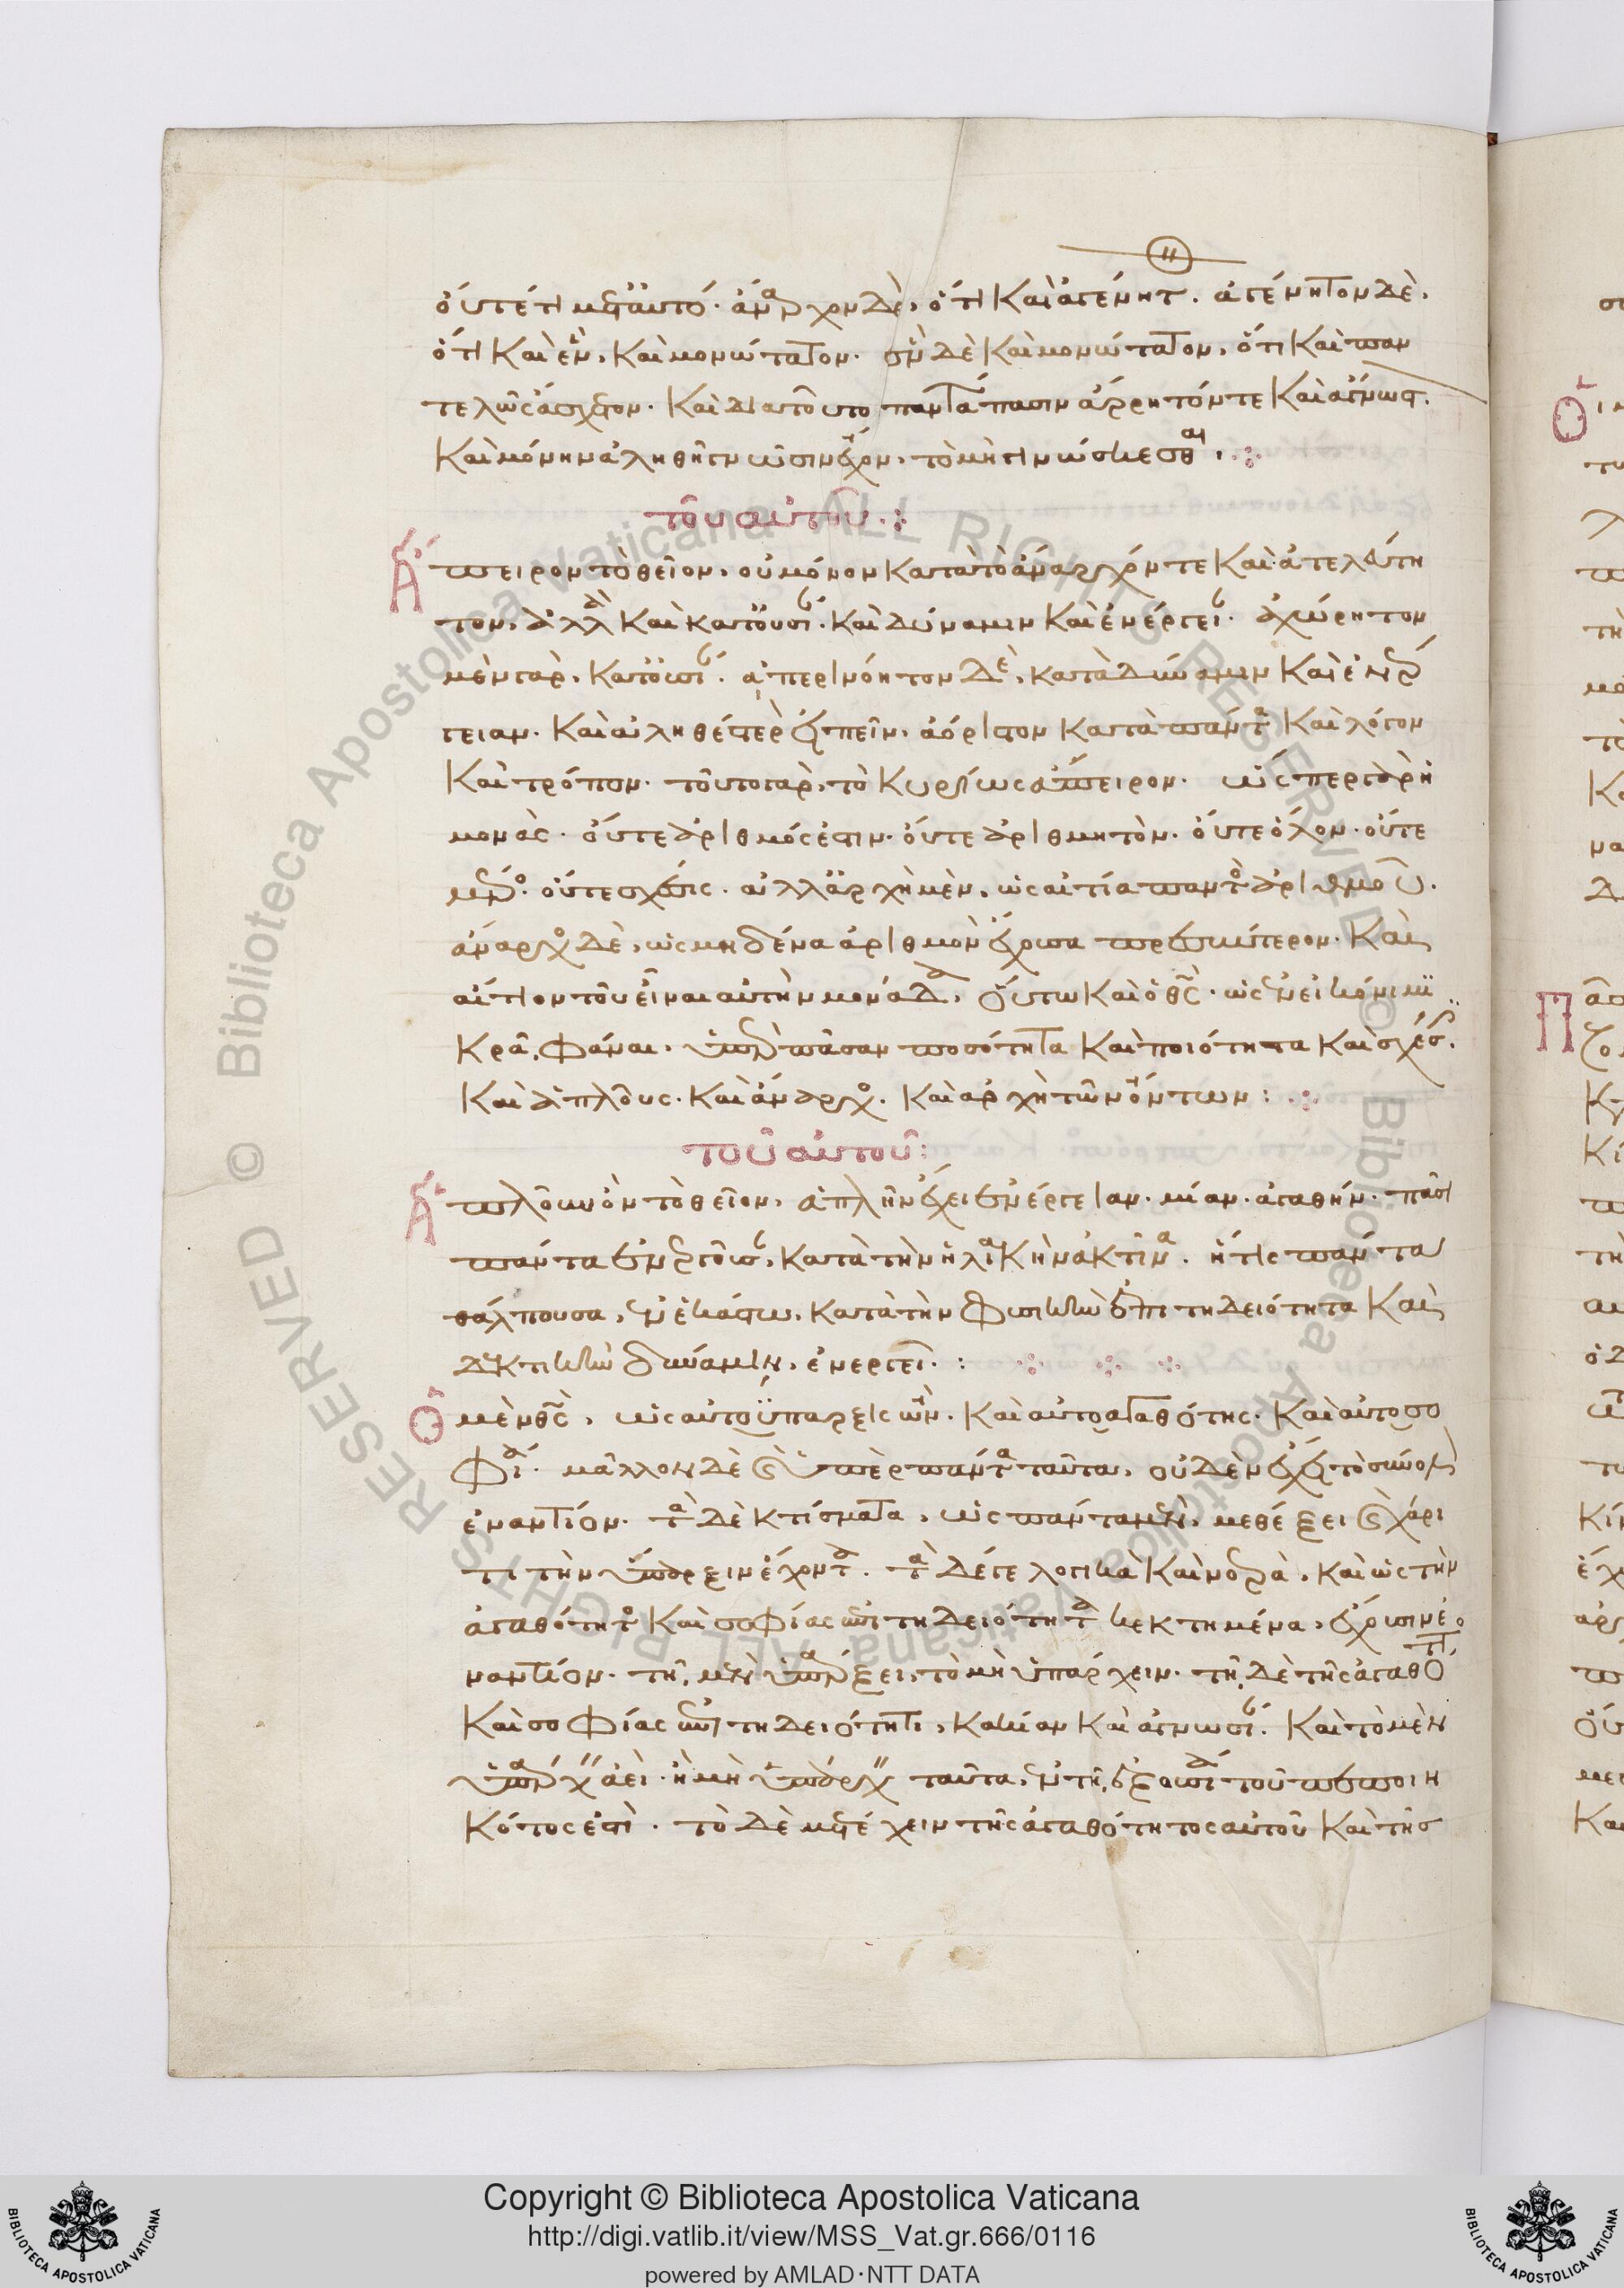 οὔτέ τι μετ' αὐτό. ἄναρχον δὲ, ὅτι καὶ ἀγένητ. ἀγένητον δὲ,
ὅτι καὶ ἓν, καὶ μονώτατον. ἓν δὲ καὶ μονώτατον, ὅτι καὶ παν
τελῶς ἄσχετον. καὶ διατοῦτο παντάπασιν ἄρρητόν τε καὶ ἄγνωστ.
καὶ μόνην ἀληθῆ γνῶσιν ἔχον, τὸ μὴ γινώσκεσθαι
τοῦ αὐτοῦ
Ἄ πειρον τὸ θεῖον, οὐ μόνον κατὰ τὸ ἄναρχόν τε καὶ ἀτελεύτη
τον, ἀλλὰ καὶ κατ' οὐσί. καὶ δύναμιν καὶ ἐνέργει. ἀχώρητον
μὲν γὰρ, κατ' οὐσί. ἀπερινόητον δὲ, κατὰ δύναμιν καὶ ἐνέρ
γειαν. καὶ ἀληθέστερ εἰπεῖν, ἀόριστον κατὰ πάντα καὶ λόγον
καὶ τρόπον. τοῦτο γὰρ, τὸ κυρίως ἄπειρον. ὥσπερ γὰρ ἡ
μονὰς. οὔτε ἀριθμός ἐστιν. οὔτε ἀριθμητὸν. οὔτε ὅλον. οὔτε
μέρο. οὔτε σχέσις. ἀλλ' ἀρχὴ μὲν, ὡς αἰτία παντὸ ἀριθμοῦ.
ἄναρχο δὲ, ὡς μηδένα ἀριθμὸν ἔχουσα πρεσβύτερον. καὶ
αἴτιον τοῦ εἶναι αὐτὴν μονάδα, οὕτω καὶ ὁ θς. ὡς ἐν εἰκόνι μι
κρᾷ φάναι. ὑπὲρ πᾶσαν ποσότητα καὶ ποιότητα καὶ σχέσ.
καὶ ἁπλοῦς. καὶ ἄναρχο. καὶ ἀρχὴ τῶν ὄντων :
τοῦ αὐτοῦ:
Ἁ πλοῦν ὂν τὸ θεῖον, ἁπλῆν ἔχει ἐνέργειαν. μίαν. ἀγαθήν. πᾶσι
πάντα ἐνεργοῦσ, κατὰ τὴν ἡλιακὴν ἀκτῖνα. ἥτις πάντα
θάλπουσα, ἐν ἑκάστω, κατὰ τὴν φυσικὴν ἐπιτηδειότητα καὶ
δεκτικὴν δύναμιν, ἐνεργεῖ. :
Ὁ μὲν θς, ὡς αὐτοΰπαρξις ὢν. καὶ αὐτοαγαθότης. καὶ αὐτοσο
φία. μᾶλλον δὲ καὶ ὑπὲρ πάντα ταῦτα, οὐδὲν ἔχει τὸ σύνολον
ἐναντίον. τὰ δὲ κτίσματα, ὡς πάντα μὲν, μεθέξει καὶ χάρι
τι τὴν ὕπαρξιν ἔχοντα. τὰ δέ γε λογικὰ καὶ νοερὰ, καὶ ὡς τὴν
ἀγαθότητο καὶ σοφίας ἐπιτηδειότητα κεκτημένα, ἔχουσιν ἐ
ναντίον. τῇ μὲν ὑπάρξει, τὸ μὴ ὑπάρχειν. τῇ δὲ τῆς ἀγαθότη
καὶ σοφίας ἐπιτηδειότητι, κακίαν καὶ ἀγνωσί. καὶ τὸ μὲν
ὑπάρχ ἀεὶ. ἢ μὴ ὑπάρχ ταῦτα, ἐν τῇ ἐξουσία τοῦ πεποιη
κότος ἐστὶ. τὸ δὲ μετέχειν τῆς ἀγαθότητος αὐτοῦ καὶ τῆς
Copyright © Biblioteca Apostolica Vaticana
http://digi.vatlib.it/view/MSS_Vat.gr.666/0116
powered by AMLAD·NTT DATA